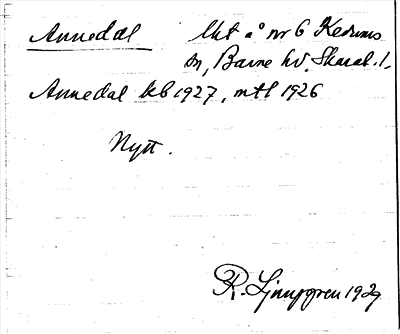 Annedal Lht a° nr 6 Kedums
sn, Barne hd. Skarab. l.
Annedal kb 1927, mtl 1926
Nytt.
R. Ljunggren 1929